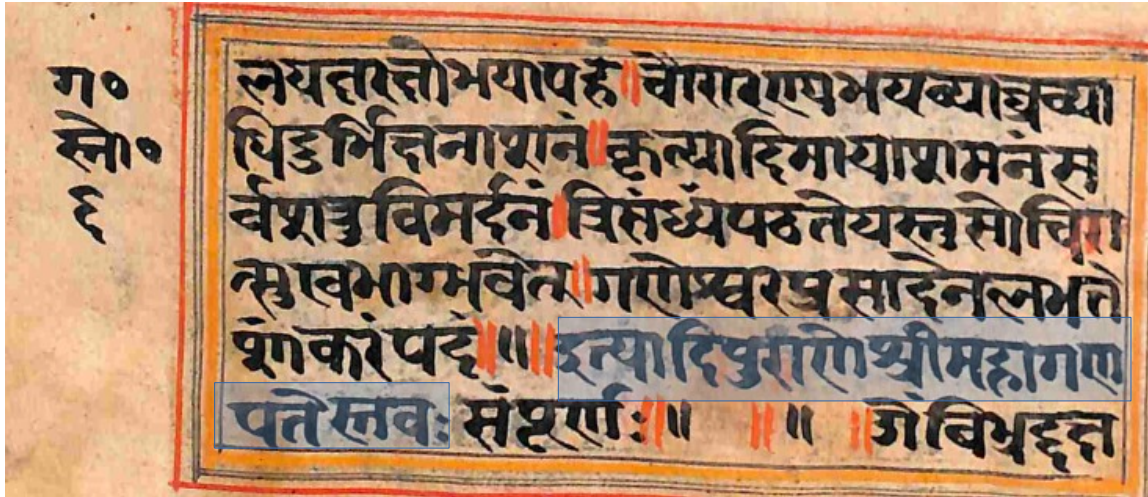 ग०
स्तो०
६
लयतरतो भयापहे॥ चौरारण्यभयव्याघ्रव्या
धिदुर्भिक्षनाशनं॥ कृत्यादिमायाशमनं स
र्वशत्रुविमर्दनं॥ त्रिसंध्यं पठते यस्तु सो चिरा
त्सुखभाग्भवेत्॥ गणेश्वरप्रसादेन लभते
शांकरं पदं॥ ॥ ॥ इत्यादिपुराणे श्रीमहागण
पते स्तवः संपूर्णः॥ ॥ ॥ ॥